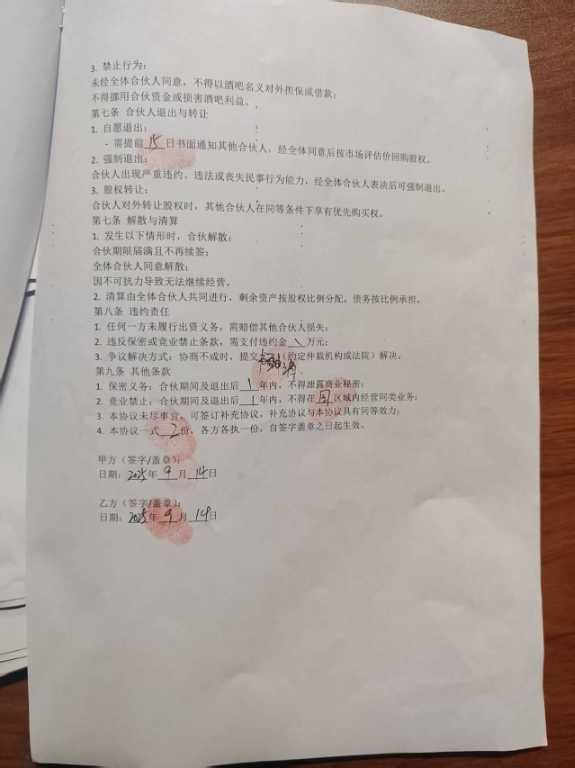 3. 禁止行为：
未经全体合伙人同意，不得以酒吧名义对外担保或借款；
不得挪用合伙资金或损害酒吧利益。
第七条 合伙人退出与转让
1. 自愿退出：
- 需提前15日书面通知其他合伙人，经全体同意后按市场评估价回购股权。
2. 强制退出：
合伙人出现严重违约、违法或丧失民事行为能力，经全体合伙人表决后可强制退出。
3. 股权转让：
合伙人对外转让股权时，其他合伙人在同等条件下享有优先购买权。
第七条 解散与清算
1. 发生以下情形时，合伙解散：
合伙期限届满且不再续签；
全体合伙人同意解散；
因不可抗力导致无法继续经营。
2. 清算由全体合伙人共同进行，剩余资产按股权比例分配，债务按比例承担。
第八条 违约责任
1. 任何一方未履行出资义务，需赔偿其他合伙人损失；
2. 违反保密或竞业禁止条款，需支付违约金\万元；
3. 争议解决方式：协商不成时，提交（约定仲裁机构或法院）解决。
第九条 其他条款
1. 保密义务：合伙期间及退出后1年内，不得泄露商业秘密；
2. 竞业禁止：合伙期间及退出后1年内，不得在区域内经营同类业务；
3. 本协议未尽事宜，可签订补充协议，补充协议与本协议具有同等效力；
4. 本协议一式2份，各方各执一份，自签字盖章之日起生效。
甲方（签字/盖章）：
日期：2025年9月14日
乙方（签字/盖章）：
日期：2025年9月14日